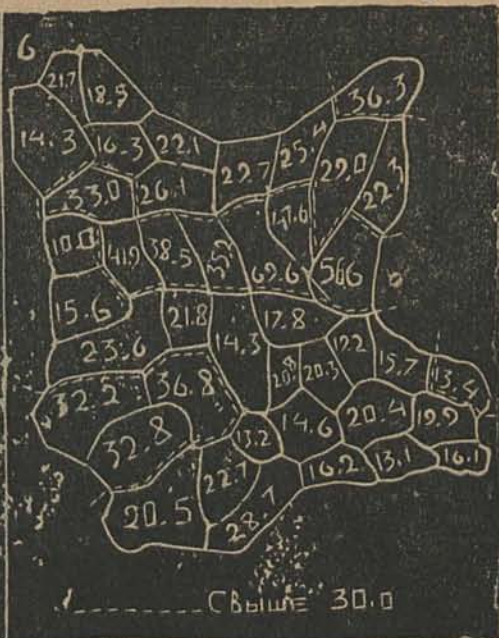 6
21.7 18.5 36.3
14.3 16.3 22.1 29.7 25.4 29.0 22.3
33.0 26.1 17.6
10.0 41.9 38.5 69.6 56.6
15.6 21.8 14.3 17.8
23.6 20.8 20.3 19.2 15.7 13.4
32.2 36.8 14.6 20.4 19.9
32.8 13.2 16.2 13.1 16.1
20.5 22.7 28.7
Свыше 30.0